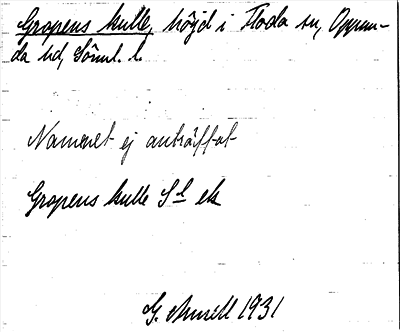 Gropens kulle, höjd i Floda sn, Oppun-
da hd, Söml. l.
Namnet ej anträffat
Gropens kulle Sd ek
G. 1931